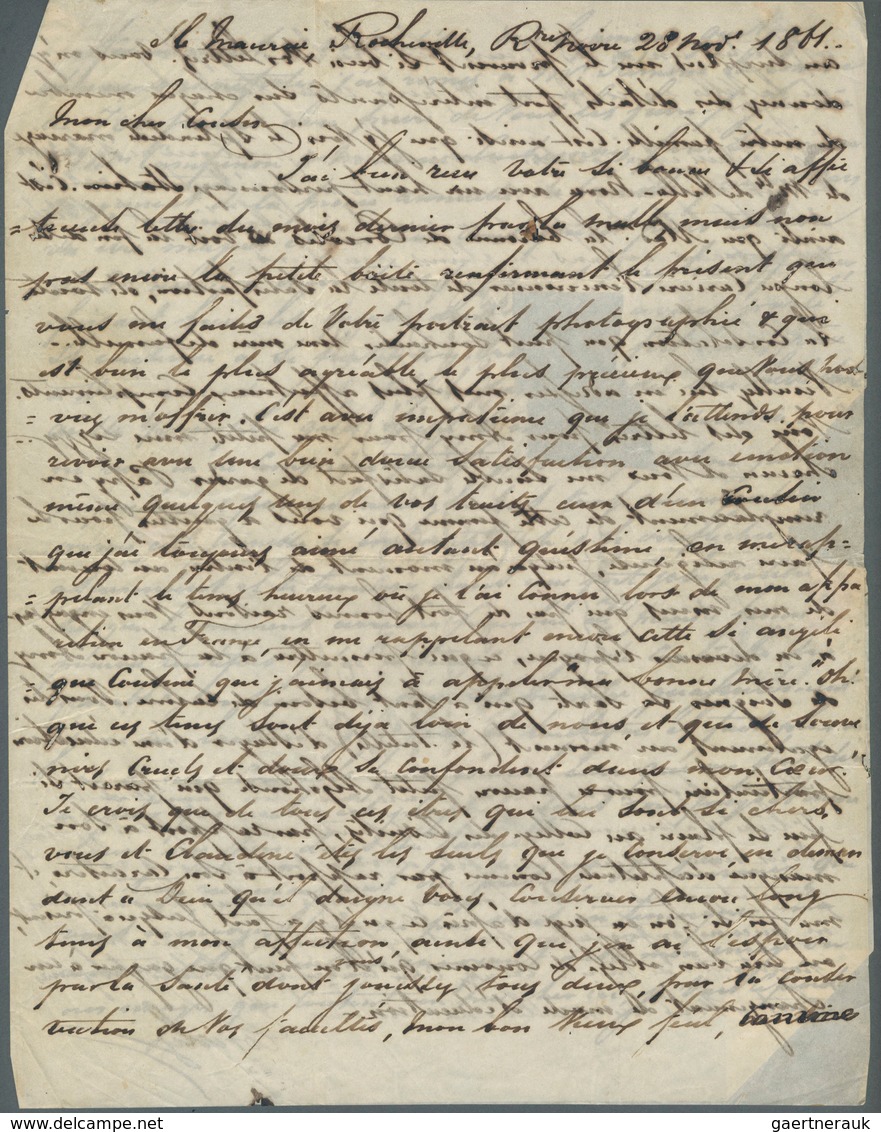 Ile Maurice, Rocheville, Rre Noire 28 Novr 1861.
Mon cher Cousin
J'ai bien reçu votre si bonne & si affec
= tueuse lettre du mois dernier par la malle, mais non
pas encore la petite boîte renfermant le présent que
vous me faites de Votre portrait photographié & qui
est bien le plus agréable le plus précieux que Vous
= viez m'offrir. C'est avec impatience que je l'attends pour
revoir avec une bien douce satisfaction avec émotion
même quelques uns de vos traits, ceux d'un Cousin
que j'ai toujours aimé autant qu'estimé, en me rap=
= pelant le tems heureux où je l'ai connu lors de mon appa
rition en France, en me rappelant encore cette si angéli
= que Cousine que j'aimais à appeler "ma bonne mère." Oh!
que ces tems sont déja loin de nous, et que de souve
nirs cruels et doux se confondent dans mon Cœur!
Je crois que de tous ces êtres qui me sont si chers,
vous et Claudine êtes les seuls que je conserve en deman
dant à Dieu qu'il daigne vous conserver encore long
tems à mon affection ainsi que j'en ai l'espoir
par la santé dont vous jouissez tous deux, par la conser
vation de Vos facultés, mon bon Vieux
gaertnerauk